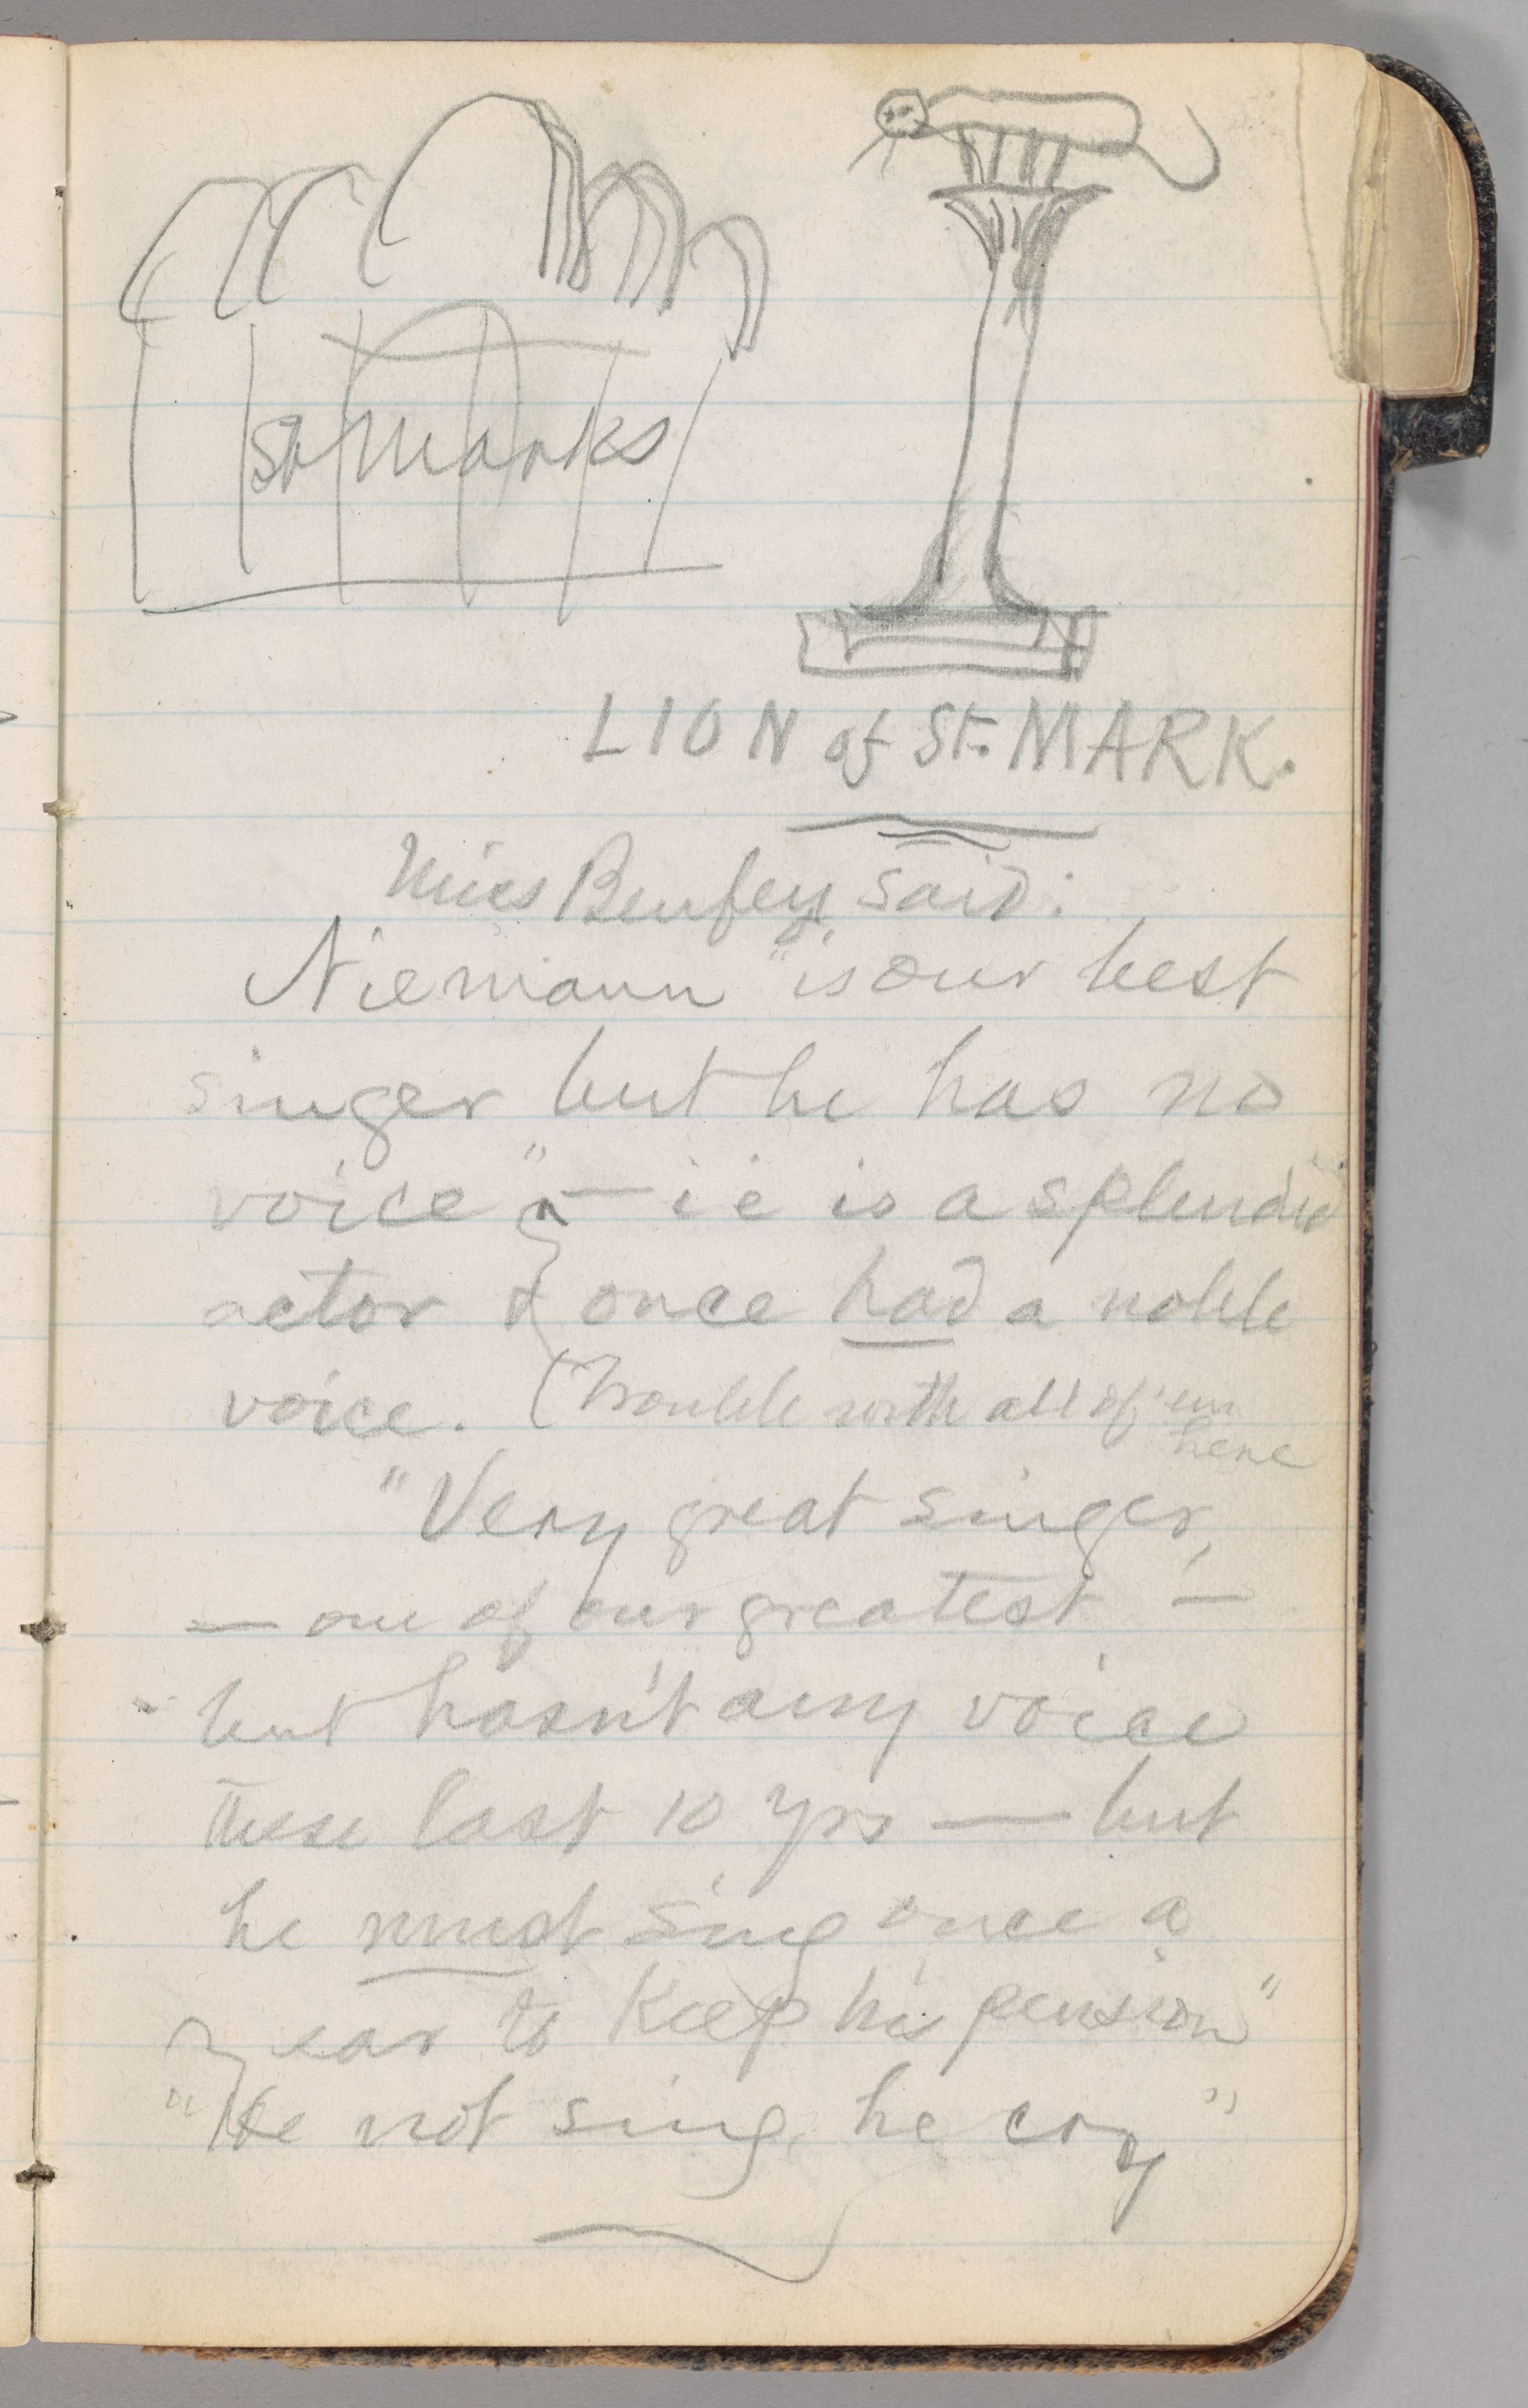 St Marks
LION of St. MARK.
Miss Benfey said:
Niemann "is our best
singer but he has no
voice" — i e is a splendid
actor & once had a noble
voice. (Trouble with all of 'em
here
"Very great singer,
— one of our greatest —
but hasn't any voice
these last 10 yrs — but
he must sing once a
year to keep his pension"
"He not sing, he cry"